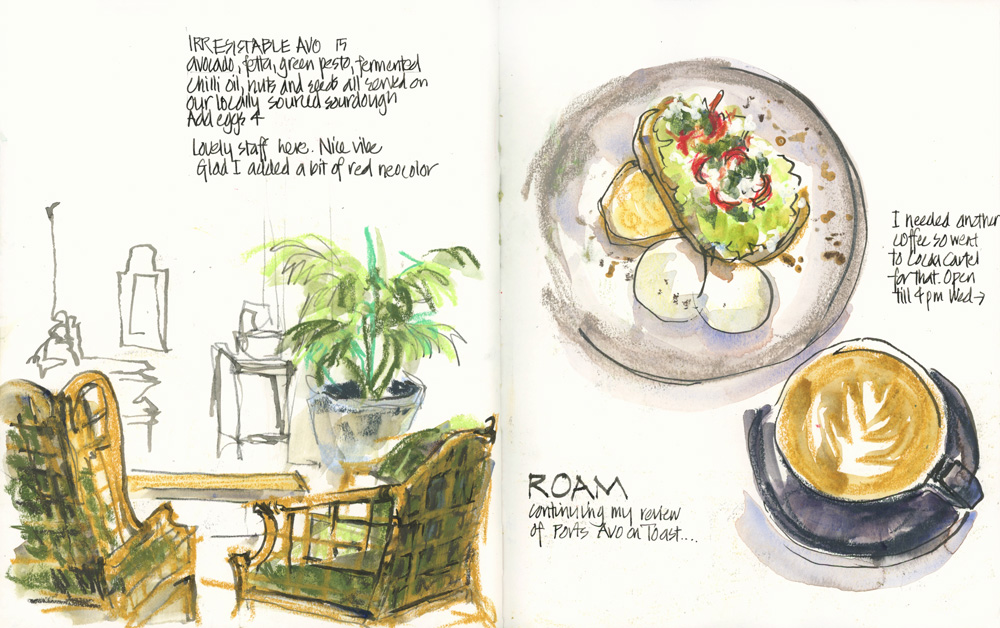 IRRESISTABLE AVO 15
avocado, fetta, green pesto, fermented
chilli oil, nuts and seeds all served on
our locally sourced sourdough
Add eggs 4
Lovely staff here. Nice vibe
Glad I added a bit of red neocolor
I needed another
coffee so went
to Cocoa Cartel
for that. Open
till 4pm Wed→
ROAM
continuing my review
of Ports Avo on Toast....